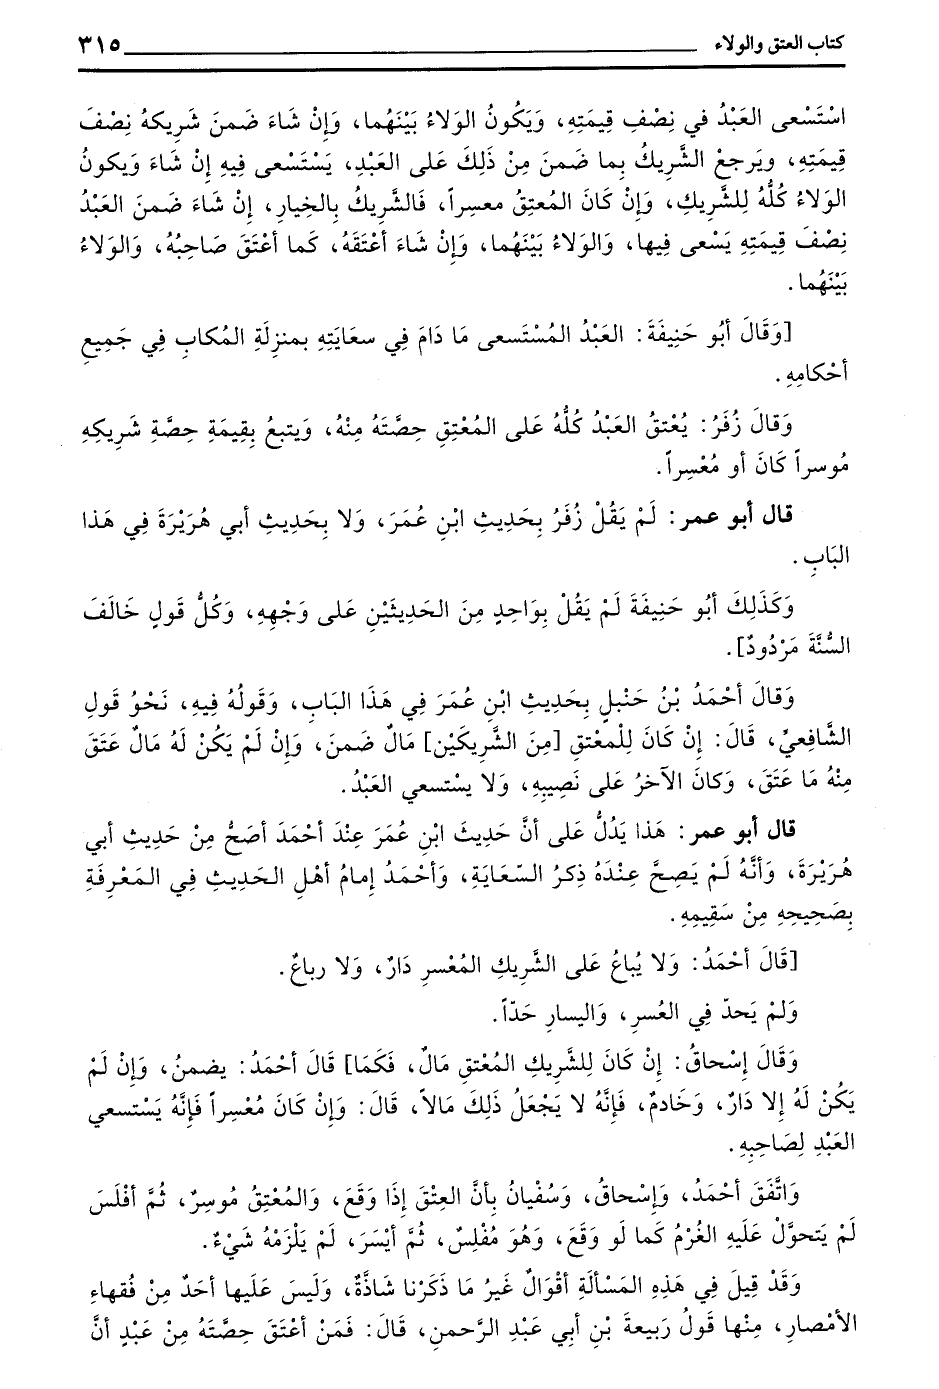 كتاب العتق والولاء ٣١٥
اسْتَسْعى العَبْدُ في نِصْفِ قِيمَتِهِ، وَيَكُونُ الوَلاءُ بَيْنَهُما، وَإِنْ شَاءَ ضَمنَ شَرِيكهُ نِصْفَ
قِيمَتِهِ، ويَرجعْ الشَّرِيكُ بِما ضَمنَ مِنْ ذَلِكَ عَلى العَبْدِ، يَسْتَسْعى فِيهِ إِنْ شَاءَ وَيكونُ
الوَلاءُ كُلُّهُ لِلشَّرِيكِ، وَإِنْ كَانَ المُعتِقُ معسِراً، فَالشَّرِيكُ بِالخيارِ، إِنْ شَاءَ ضَمنَ العَبْدُ
نِصْفَ قِيمَتِهِ يَسْعى فِيها، وَالوَلاءُ بَيْنَهُما، وَإِنْ شَاءَ أَعْتَقَهُ، كَما أَعْتَقَ صَاحِبُهُ، وَالوَلاءُ
بَيْنَهُما.
[وَقَالَ أَبُو حَنِيفَةَ: العَبْدُ المُسْتَسعى مَا دَامَ فِي سعَايَتِهِ بمنزِلَةِ المُكاب فِي جَمِيعِ
أَحْكامِهِ.
وَقالَ زُفَرُ: يُعْتقُ العَبْدُ كُلُّهُ عَلى المُعْتِقِ حِصَّتَهُ مِنْهُ، وَيَتبعُ بِقِيمَةِ حِصَّةِ شَرِيكِهِ
مُوسراً كَانَ أو مُعْسِراً.
قال أبو عمر: لَمْ يَقُلْ زُفَرُ بِحَدِيثِ ابْنِ عُمَرَ، وَلا بِحَدِيثِ أبي هُرَيْرَةَ فِي هَذا
البَابِ.
وَكَذَلِكَ أَبُو حَنِيفَةَ لَمْ يَقُلْ بِوَاحِدٍ مِنَ الحَدِيثَيْنِ عَلى وَجْهِهِ، وَكُلُّ قَولٍ خَالَفَ
السُّنَّةَ مَرْدُودٌ].
وَقالَ أَحْمَدُ بْنُ حَنْبلٍ بِحَدِيثِ ابْنِ عُمَرَ فِي هَذَا البَابِ، وَقَولُهُ فِيهِ، نَحْوُ قَولِ
الشَّافِعيِّ، قَالَ: إِنْ كَانَ لِلْمعْتقِ [مِنَ الشَّرِيكَيْنِ] مَالٌ ضَمنَ، وَإِنْ لَمْ يَكُنْ لَهُ مَالٌ عَتَقَ
مِنْهُ مَا عَتَقَ، وَكانَ الآخرُ عَلى نَصِيبِهِ، وَلا يسْتسعي العَبْدُ.
قال أبو عمر: هَذا يَدُلُّ عَلى أنَّ حَدِيثَ ابْنِ عُمَرَ عِنْدَ أَحْمَدَ أصَحُّ مِنْ حَدِيثِ أبي
هُرَيْرَةَ، وَأنَّهُ لَمْ يَصِحَّ عِنْدَهُ ذِكرُ السّعَايَةِ، وَأحْمَدُ إِمامُ أهْلِ الحَدِيثِ فِي المَعْرِفَةِ
بِصَحِيحِهِ مِنْ سَقِيمِهِ.
[قَالَ أحْمَدُ: وَلا يُباعُ عَلى الشَّرِيكِ المُعْسرِ دَارٌ، وَلا رباعٌ.
وَلَمْ يَحدّ فِي العُسرِ، وَاليسارِ حَدّاً.
وَقَالَ إِسْحاقُ: إِنْ كَانَ لِلشَّرِيكِ المُعْتقِ مَالٌ، فَكَمَا] قَالَ أحْمَدُ: يضمنُ، وَإِنْ لَمْ
يَكُنْ لَهُ إِلا دَارٌ، وَخَادمٌ، فَإِنَّهُ لا يَجْعَلُ ذَلِكَ مَالاً، قَالَ: وَإِنْ كَانَ مُعْسِراً فَإِنَّهُ يَسْتسعي
العَبْدِ لِصَاحِبِهِ.
وَاتَّفَقَ أحْمَدُ، وَإِسْحاقُ، وَسُفْيانُ بأنَّ العِتْقَ إِذَا وَقَعَ، وَالمُعْتِقُ مُوسِرٌ، ثُمَّ أفْلَسَ
لَمْ يَتحوَّلْ عَلَيهِ الغُرْمُ كَما لَو وَقَعَ، وَهُوَ مُفْلِسٌ، ثُمَّ أيْسَرَ، لَمْ يَلْزَمْهُ شَيْءٌ.
وَقَدْ قِيلَ فِي هَذِهِ المَسْألَةِ أقْوَالٌ غَيرُ مَا ذَكَرْنا شَاذَّةٌ، وَلَيسَ عَلَيها أحَدٌ مِنْ فُقهاءِ
الأمْصارِ، مِنْها قَولُ رَبِيعةَ بْنِ أبي عَبْدِ الرَّحمنِ، قَالَ: فَمَنْ أعْتَقَ حِصَّتَهُ مِنْ عَبْدٍ أنَّ